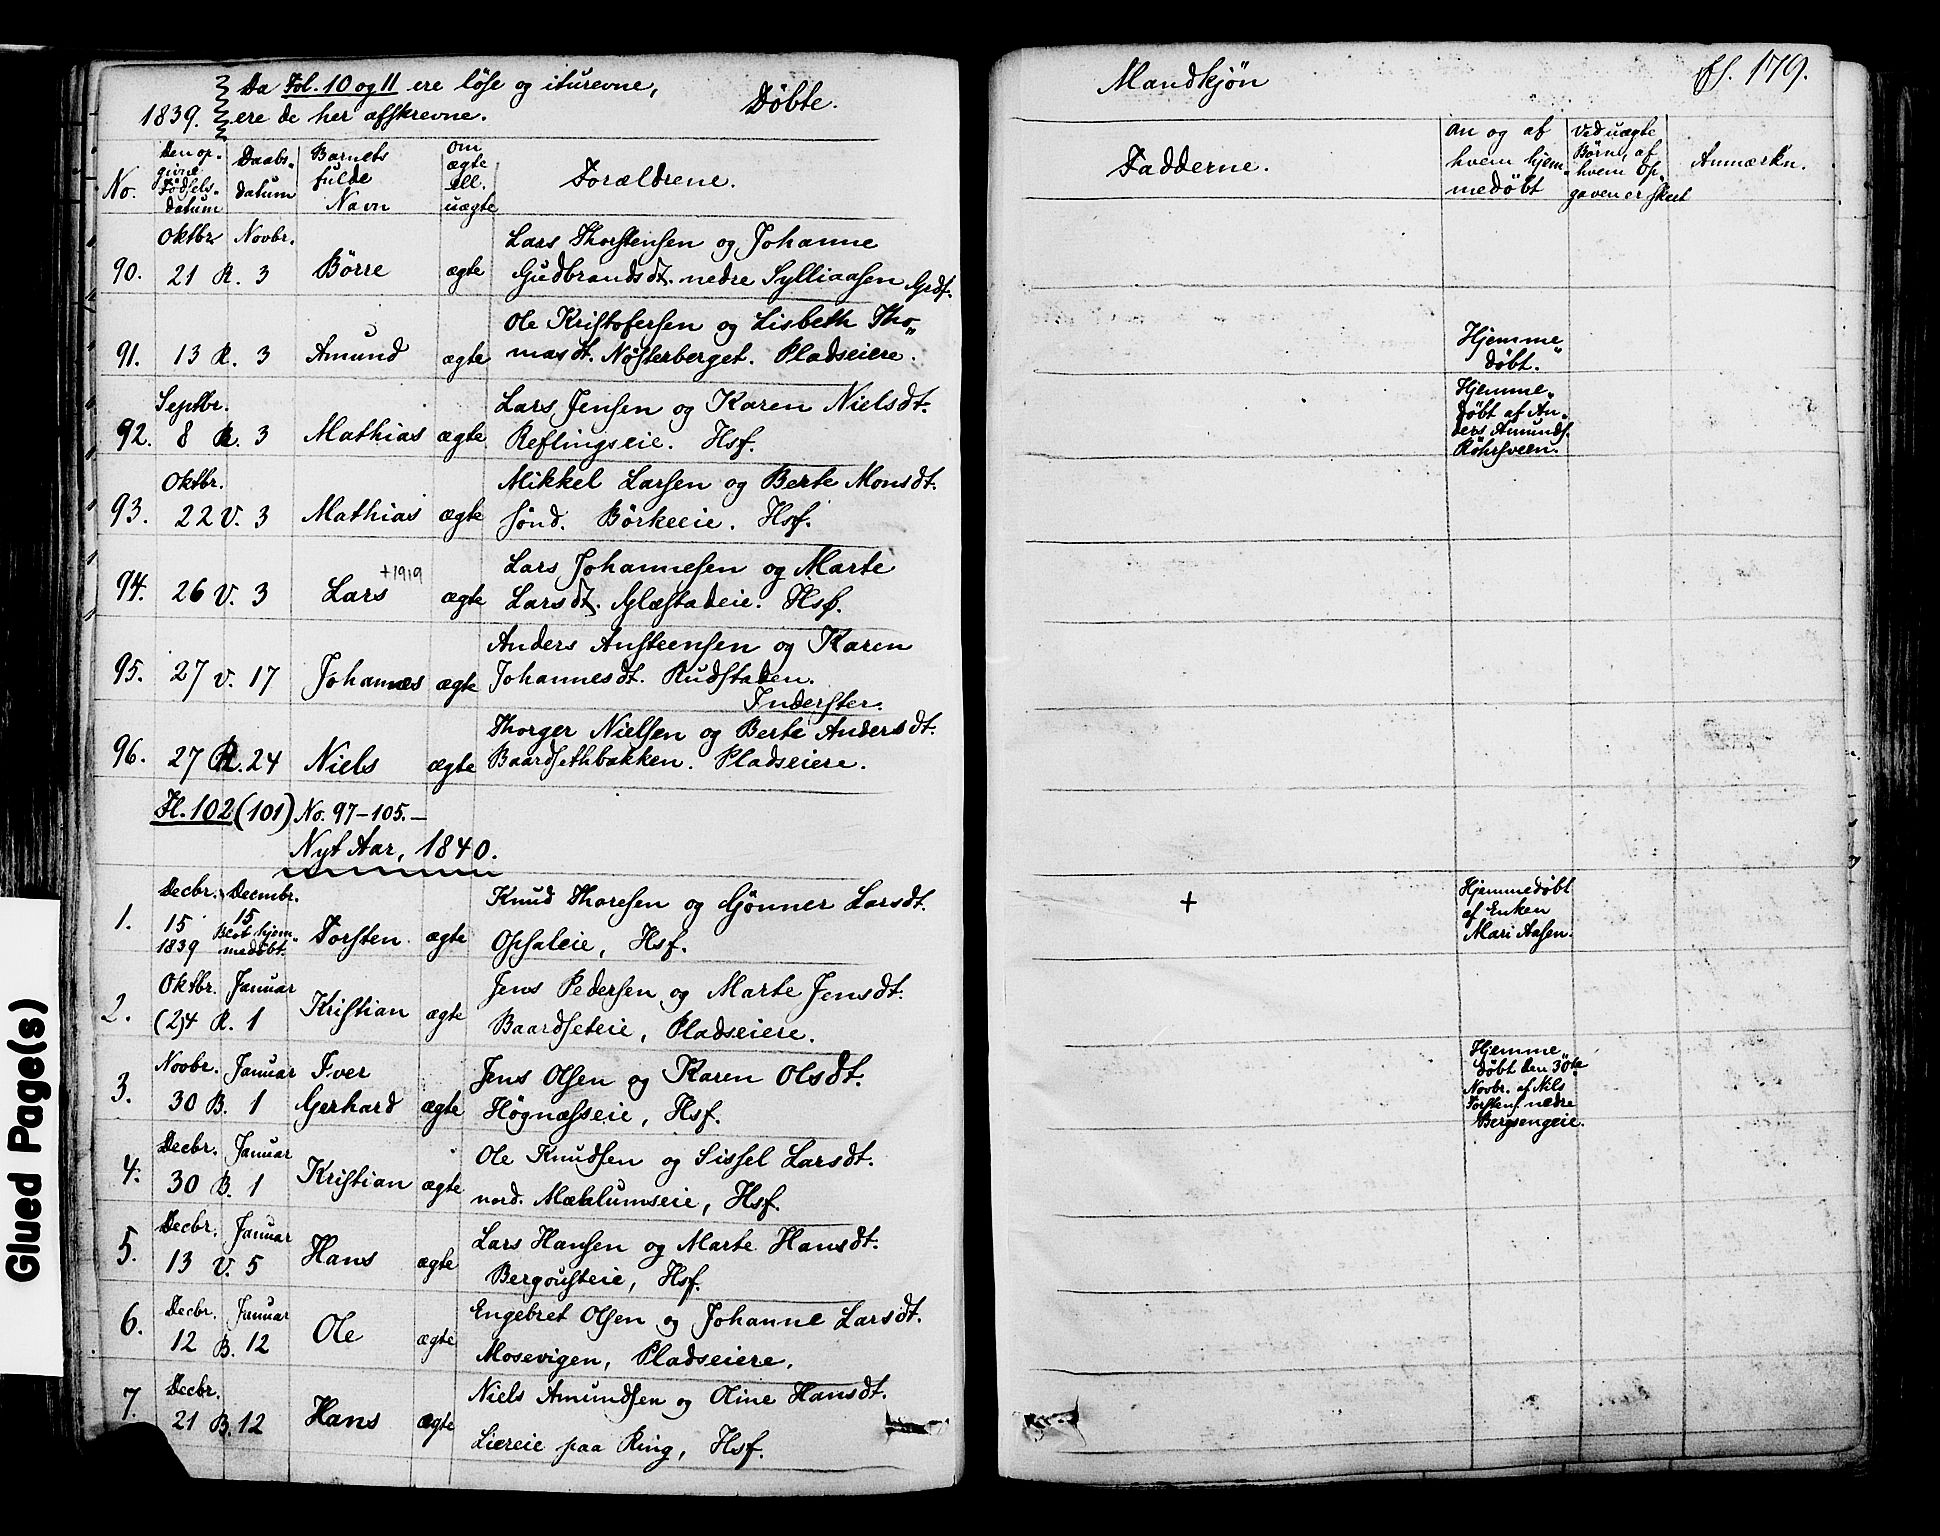 Da Fol. 10 og 11 ere löse og iturevne,
1839. ere de her afskrevne. Döbte.
No. Den opgivne Födselsdatum Daabsdatum Barnets fulde Navn om ægte ell. uægte Forældrene.
Oktbr. Novbr. Lars Thorstensen og Johanne
90. 21 R. 3 Börre ægte Gudbrandsdt. nedre Sylliaasen Grdf.
Ole Kristofersen og Lisbeth Tho„
91. 13 R. 3 Amund ægte masdt. Nösterberget. Pladseiere.
Septbr. Lars Jensen og Karen Nielsdt.
92. 8 R. 3 Mathias ægte Reflingseie. Hsf.
Oktbr. Mikkel Larsen og Berte Monsdt.
93. 22 V. 3 Mathias ægte sönd. Börkeeie. Hsf.
+1919 Lars Johannesen og Marte
94. 26 V. 3 Lars ægte Larsdt. Glæstadeie. Hsf.
Anders Anstensen og Karen
95. 27 V. 17 Johannes ægte Johannesdt. Rudstaden.
Inderster.
Thorger Nielsen og Berte Andersdt.
96. 27 R. 24 Niels ægte Baardsethbakken. Pladseiere.
Fl. 102 (101) No. 97-105.-
Nyt Aar, 1840.
Decbr. Decmbr. Knud Thoresen og Gjönner Larsdt.
1. 15 1839 15 Blot hjem„medöbt. Torsten ægte Opsaleie, Hsf.
Oktbr. Januar Jens Pedersen og Marte Jensdt.
2. (2)4 R. 1 Kristian ægte Baardseteie, Pladseiere.
Novbr. Januar Iver Jens Olsen og Karen Olsdt.
3. 30 B. 1 Gerhard ægte Högnæsseie, Hsf.
Decbr. Januar Ole Knudsen og Sissel Larsdt.
4. 30 B. 1 Kristian ægte nord. Mæhlumseie, Hsf.
Decbr. Januar Lars Hansen og Marte Hansdt.
5. 13 V. 5 Hans ægte Bergousteie, Hsf.
Decbr. Januar Engebret Olsen og Johanne Larsdt.
6. 12 B. 12 Ole ægte Mosevigen, Pladseiere.
Decbr. Niels Amundsen og Oline Hansdt.
7. 21 B. 12 Hans ægte Liereie paa Ring, Hsf.
Mandkjön 179.
Fadderne. an og af hvem hjemmedöbt Ved uægte Börn, af hvem Opgaven er skeet Anmærkn.
Hjemme„
döbt.
Hjemme„
döbt af An„
ders Amunds.
Röhrsveen.
+
Hjemmedöbt
af Enken
Mari Aasen.
Hjemme„
döbt den 30te
Novbr. af Nils
Torstens. nedre
Bergsengeie.
Glued Page(s)